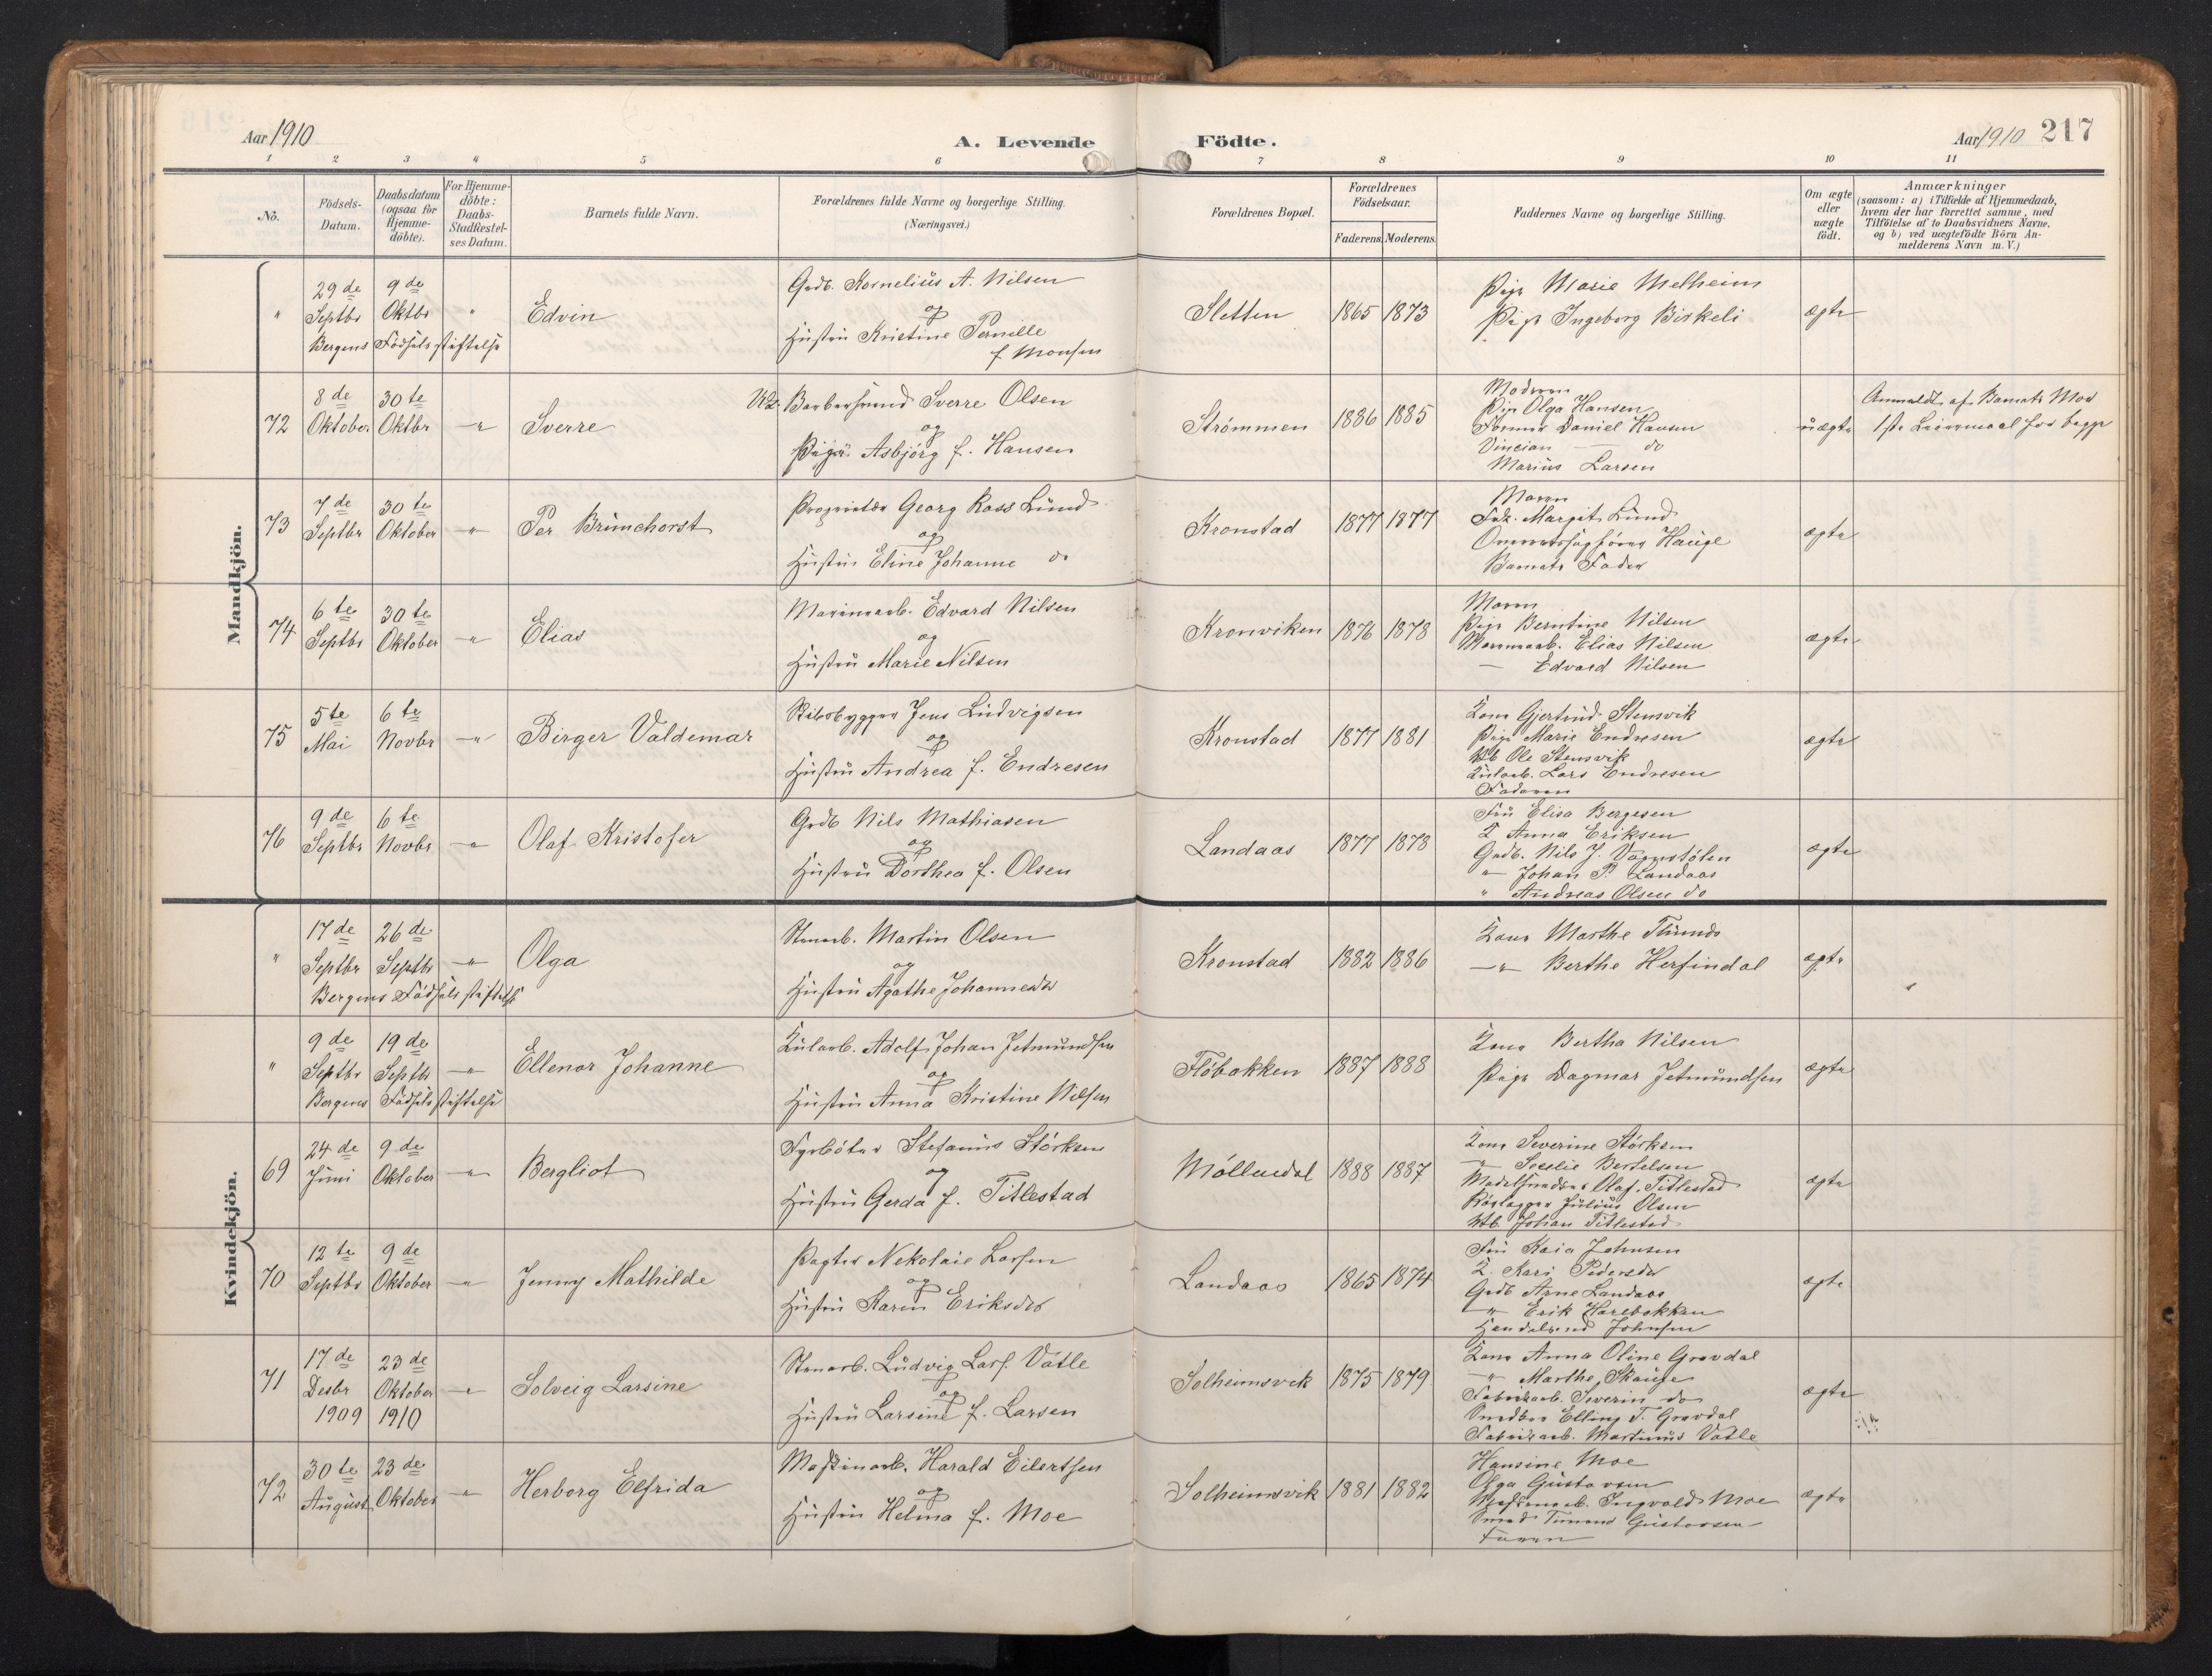 Aar 1910
A. Levende Födte.
Aar 1910 217
1 2 3 4 5 6 7 8 9 10 11
No.
Födsels-Datum.
Daabsdatum (ogsaa for Hjemme-döbte).
For Hjemme-döbte: Daabs-Stadfæstel-ses Datum.
Barnets fulde Navn.
Forældrenes fulde Navne og borgerlige Stilling.
(Næringsvei.)
Forældrenes Bopæl.
Forældrenes Födselsaar.
Faderens. Moderens.
Faddernes Navne og borgerlige Stilling.
Om ægte eller uægte födt.
Anmærkninger
(saasom: a) i Tilfælde af Hjemmedaab,
hvem der har forrettet samme, med
Tilföielse af to Daabsvidners Navne,
og b) ved uægtefödte Börn An-
melderens Navn m. V.)
Mandkjön.
" 29de Septbr 9de Oktbr " Edvin
Bergens Födselsstiftelse
Grdb. Kornelius A. Nilsen
og
Hustru Kristine Pernille
f. Monsen
Sletten 1865 1873
Pige Marie Melheim
Pige Ingeborg Birkeli
ægte
72 8de Oktober 30te Oktbr " Sverre
Barbersvend Sverre Olsen
og
Pige Asbjörg f. Hansen
Strømmen 1886 1885
Moderen
Pige Olga Hansen
Daniel Hansen
Vincian do
Marius Larsen
uægte
Anmeldt af Barnets Mor
1ste Leiermaal for begge
73 7de Septbr 30te Oktober " Per Brimchorst
Proprietær Georg Kass Lund
og
Hustru Eline Johanne do
Kronstad 1877 1877
Moren
Frk. Margit Lund
Overretssagfører Hauge
Barnets Fader
ægte
74 6te Septbr 30te Oktober " Elias
Edvard Nilsen
og
Hustru Marie Nilsen
Kronviken 1876 1878
Moren
Pige Berntine Nilsen
Elias Nilsen
— Edvard Nilsen
ægte
75 5te Mai 6te Novbr " Birger Valdemar
Skibsbygger Jens Ludvigsen
og
Hustru Andrea f. Endresen
Kronstad 1877 1881
Kone Gjertrud Stensvik
Pige Marie Endresen
Ole Stensvik
Lars Endresen
Faderen
ægte
76 9de Septbr 6te Novbr " Olaf Kristofer
Grdb Nils Mathiasen
og
Hustru Dorthea f. Olsen
Landaas 1877 1878
Fru Elisa Bergesen
K Anna Eriksen
Grdb. Nils J.
" Johan P. Landaas
" Andreas Olsen do
ægte
Kvindekjön.
" 17de Septbr 26de Septbr " Olga
Bergens Födselsstiftelse
Stenarb. Martin Olsen
og
Hustru Agathe Johannesdr
Kronstad 1882 1886
Kone Marthe
" Berthe Herfindal
ægte
" 9de Septbr 19de Septbr " Ellenor Johanne
Bergens Födselsstiftelse
Kularb. Adolf Johan Jetmundsen
og
Hustru Anna Kristine Nilsen
Flöbakken 1887 1888
Kone Bertha Nilsen
Pige Dagmar Jetmundsen
ægte
69 24de Juni 9de Oktober " Bergliot
Fyrböter Stefanus Störksen
og
Hustru Gerda f. Titlestad
Möllendal 1888 1887
Kone Severine Störksen
" Secelie Bertelsen
Olaf Titlestad
Rörlægger Julius Olsen
Johan Titlestad
ægte
70 12te Septbr 9de Oktober " Jenny Mathilde
Pagter Nekolaie Larsen
og
Hustru Karen Eriksdr
Landaas 1865 1874
Fru Kaia Johnsen
K. Kari Pedersdr
Grdb Arne Landaas
" Erik Harebakken
Handelsmd Johnsen
ægte
71 17de Desbr 1909 23de Oktober 1910 " Solveig Larsine
Stenarb. Ludvig Lars. Vatle
og
Hustru Larsine f. Larsen
Solheimsvik 1875 1879
Kone Anna Oline Gravdal
" Marthe Skauge
Fabrikarb. Severin do
Elling T. Gravdal
Fabrikarb. Martinus Vatle
ægte
72 30te August 23de Oktober " Herborg Elfrida
Maskinarb. Harald Eilertsen
og
Hustru Helma f. Moe
Solheimsvik 1881 1882
Hansine Moe
Olga Gustavsen
Maskinarb. Ingvald Moe
Smed Gustavsen
Faren
ægte